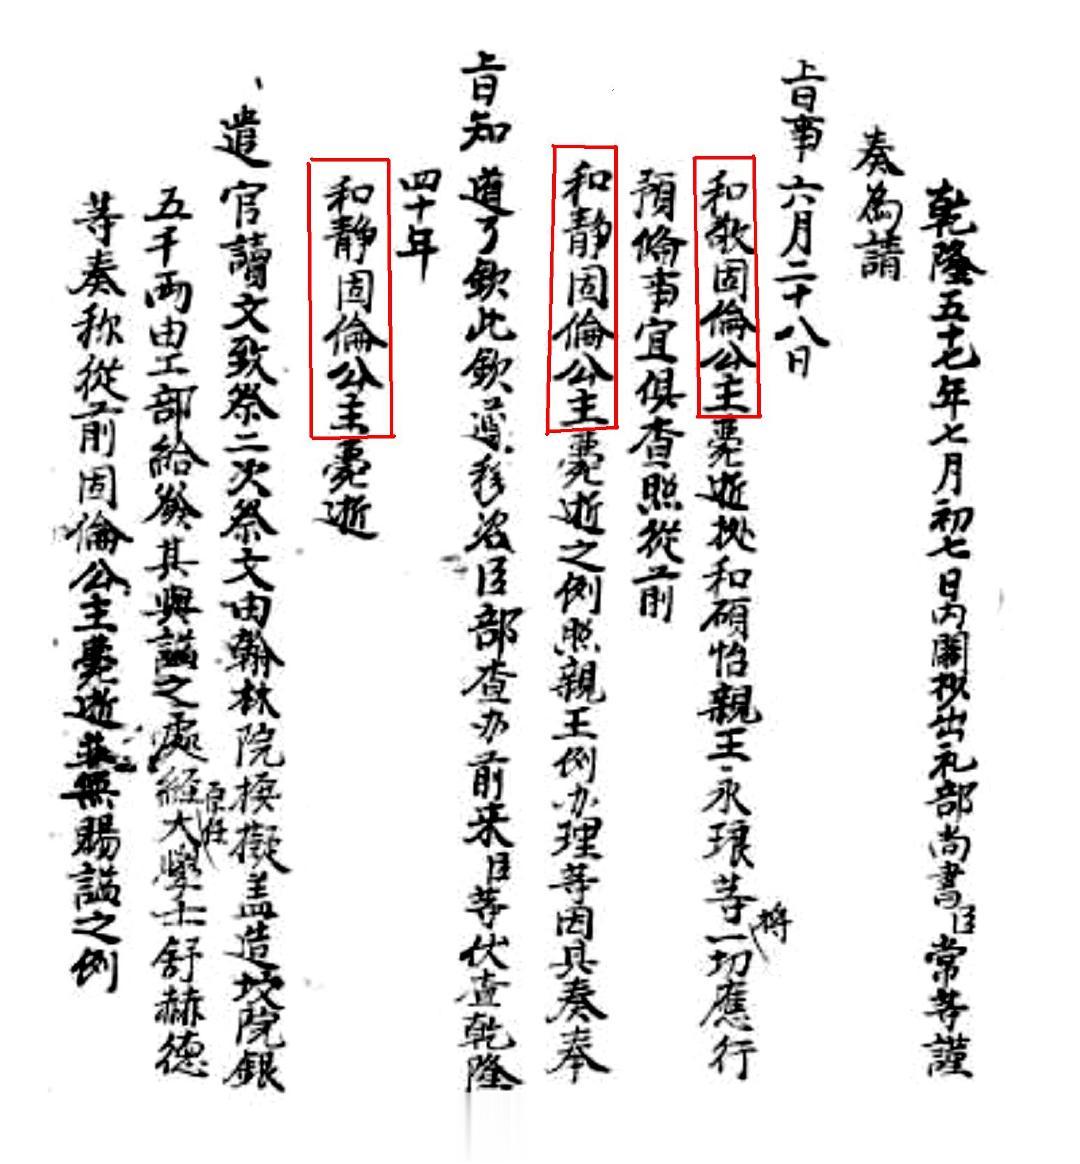 乾隆五十七年七月初七日內閣抄出礼部尚書臣常等謹
奏為請
旨事六月二十八日
和敬固倫公主薨逝據和碩怡親王永琅等將一切應行
預俻事宜俱查照從前
和靜固倫公主薨逝之例照親王例办理等因具奏奉
旨知道了欽此欽遵移咨臣部查办前来臣等伏查乾隆
四十年
和靜固倫公主薨逝
遣官讀文致祭二次祭文由翰林院撰擬盖造坟院銀
五千両由工部給發其與謚之處經原任大學士舒赫德
等奏称從前固倫公主薨逝並無賜謚之例